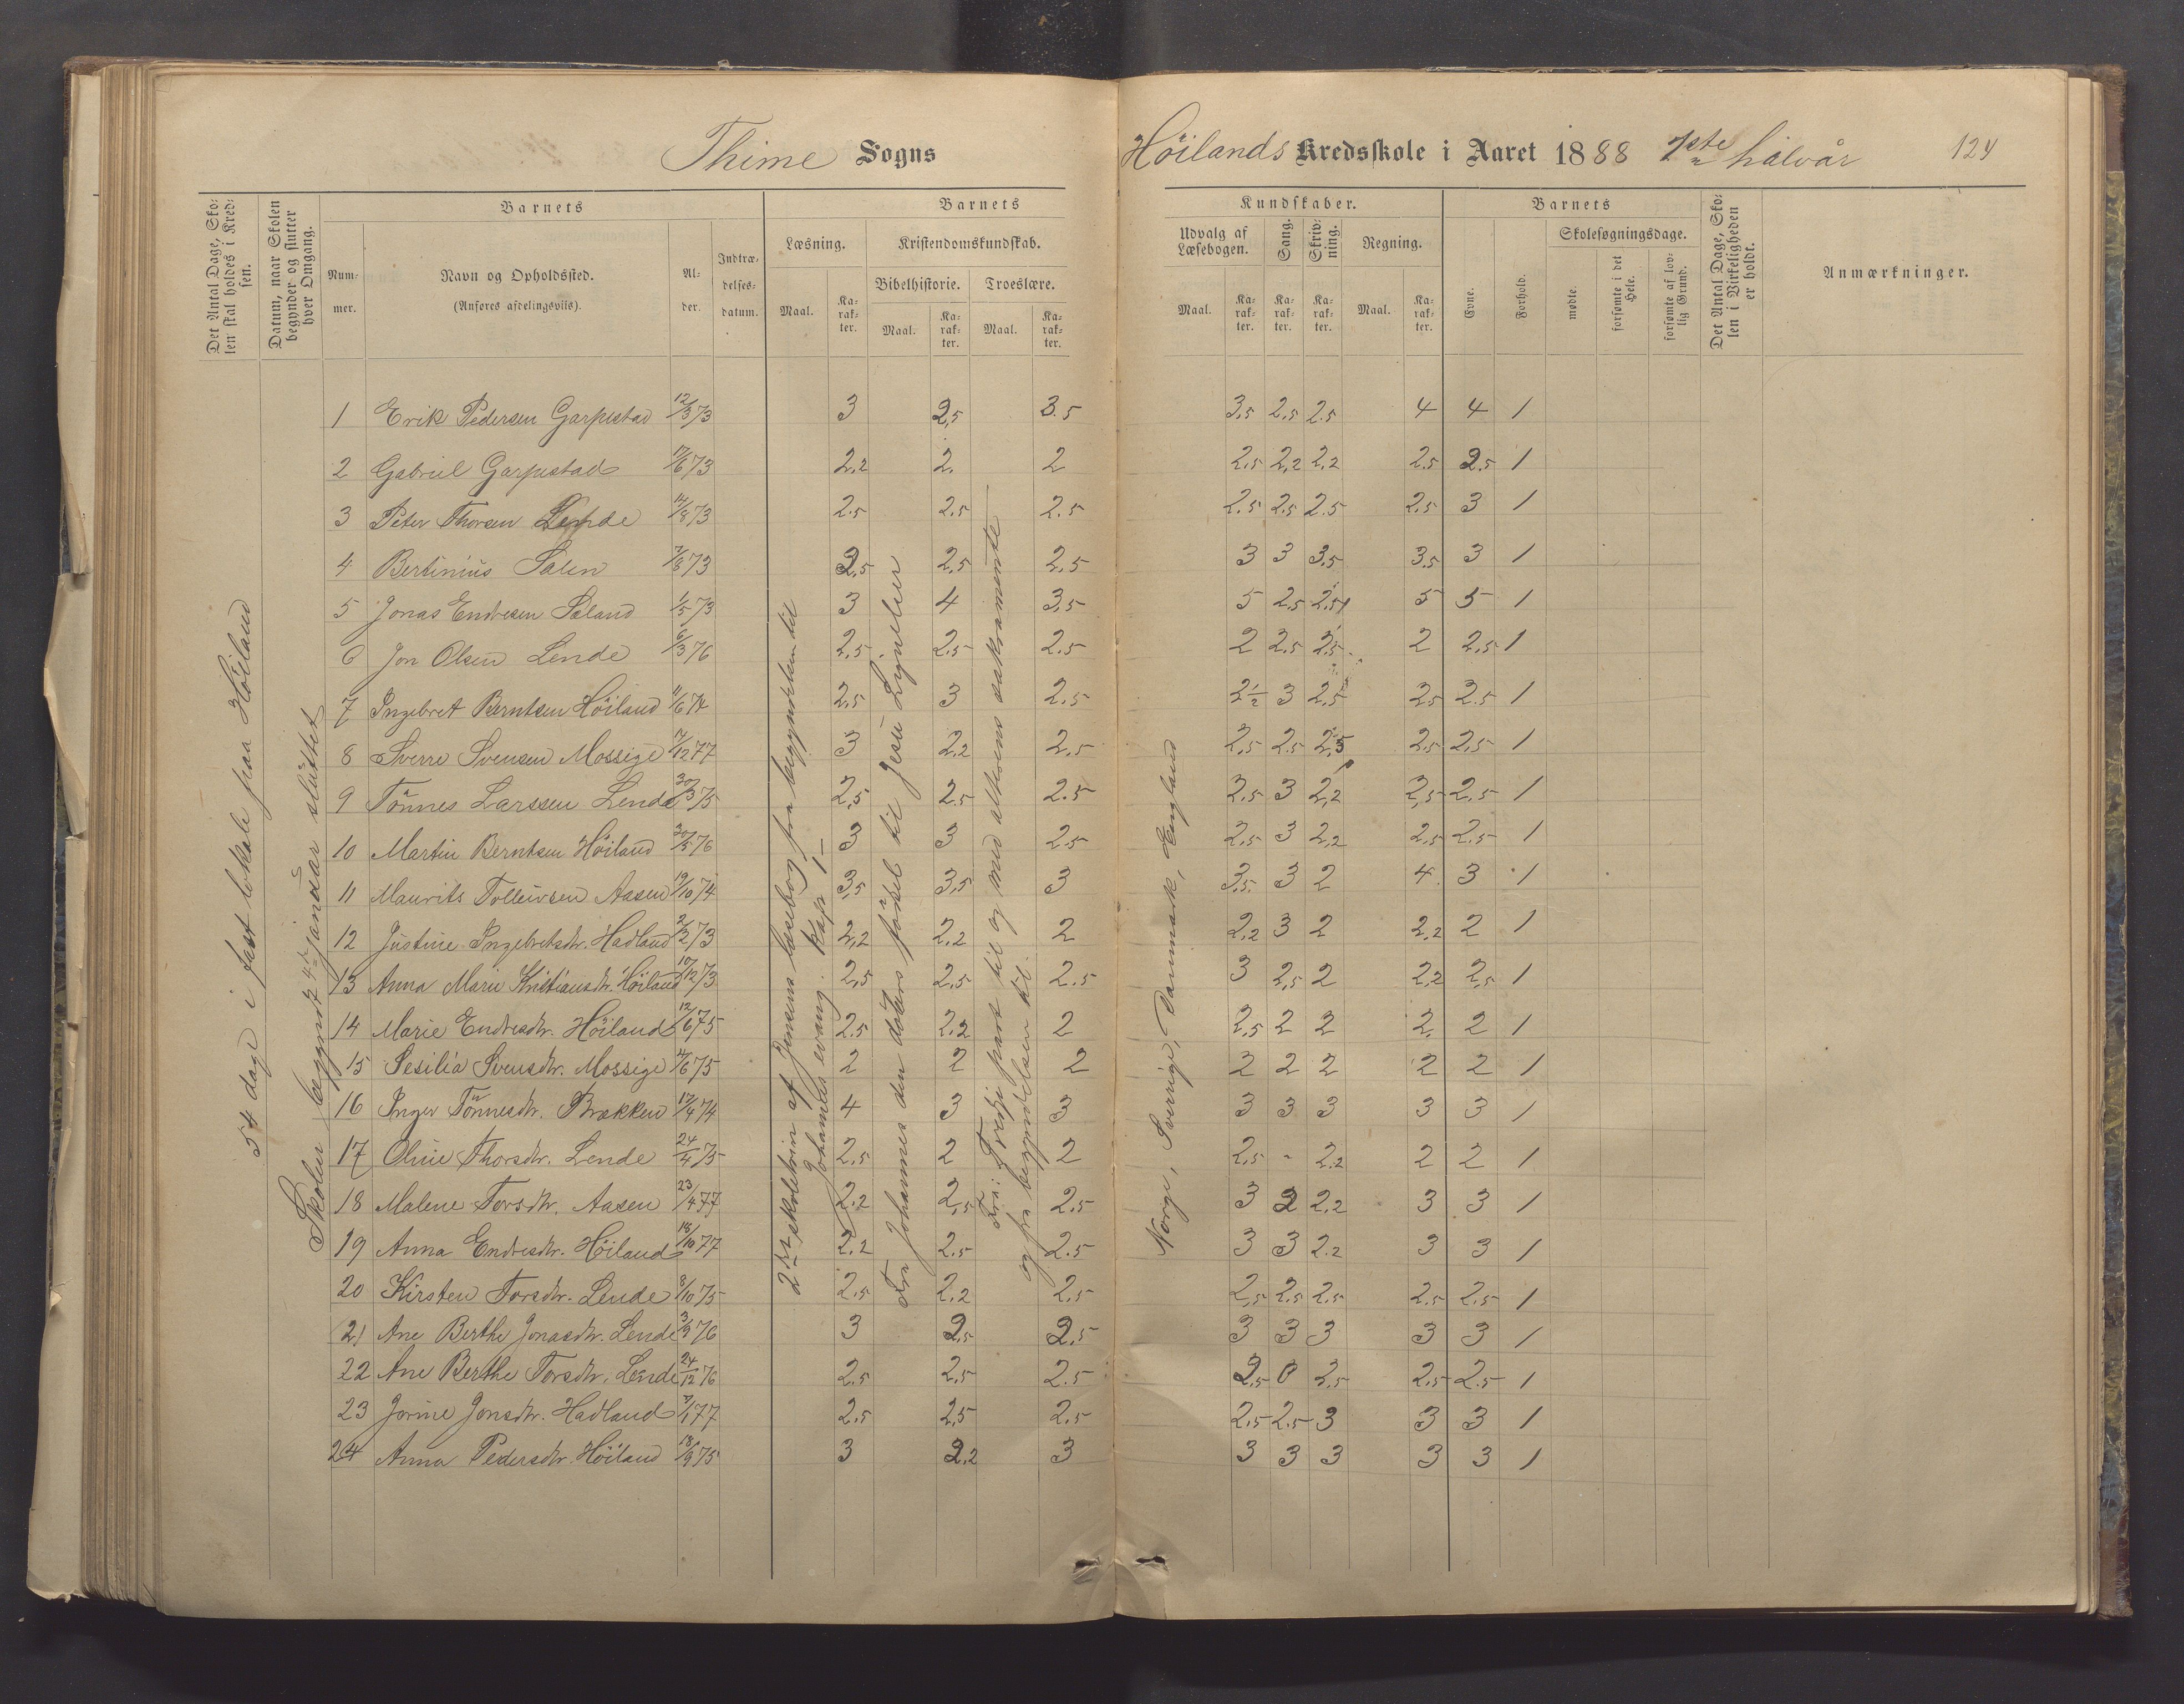 Thime Sogns Höilands Kredsskole i Aaret 1888 1ste halvår 124
Det Antal Dage, Skolen skal holdes i Kredsen.
Datum, naar Skolen begynder og slutter hver Omgang.
Barnets
Nummer.
Navn og Opholdssted.
(Anføres afdelingsvis).
Alder.
Indtrædelsesdatum.
Barnets Kundskaber.
Læsning. Kristendomskundskab.
Bibelhistorie. Troeslære.
Maal. Karakter. Maal. Karakter. Maal. Karakter.
Udvalg af Læsebogen. Sang. Skrivning. Regning.
Maal. Karakter. Karakter. Karakter. Maal. Karakter.
Barnets
Evne. Forhold. Skolesøgningsdage.
mødte. forsømte i det Hele. forsømte af lovlig Grund.
Det Antal Dage, Skolen i Virkeligheden er holdt.
Anmærkninger.
54 dage i fast lokale paa Höiland
Skolen begyndt 4de januar sluttet
2det skoletrin af Jensens læsebog fra begyndelsen til
Johannes evang. Kap 1-
Fra Johannes den döbers födsel til Jesu Lignelser
Fra: Tredje part til og med alterens sakramente
og fra begyndelsen til
Norge, Sverrige, Danmark, England
1 Erik Pedersen Garpestad 12/3 73 3 2,5 3.5 3,5 2,5 2.5 4 4 1
2 Gabriel Garpestad 17/6 73 2,2 2. 2 2,5 2,2 2,2 2.5 2.5 1
3 Peter Thorsen Lende 14/8 73 2.5 2.5 2.5 2.5 2.5 2.5 2.5 3 1
4 Bertinius Salen 7/8 73 2,5 2,5 2.5 3 3 3,5 3.5 3 1
5 Jonas Endresen Sæland 1/5 73 3 4 3,5 5 2.5 2,5 5 5 1
6 Jon Olsen Lende 6/3 76 2,5 2.5 2.5 2 2.5 2,5 2 2,5 1
7 Ingebret Berntsen Höiland 11/6 74 2,5 3 2.5 2½ 3 2.5 2.5 2.5 1
8 Sverre Svensen Mossige 17/12 77 3 2,2 2.5 2,5 2.5 2,5 2.5 2,5 1
9 Tönnes Larssen Lende 30/3 75 2,5 2.5 2.5 2.5 3 2,2 2,5 2.5 1
10 Martin Berntsen Höiland 30/5 76 3 3 2.5 2,5 3 2,2 2,5 2.5 1
11 Maurits Tolleivsen Aasen 19/10 74 3,5 3,5 3 3,5. 3 2 4 3 1
12 Justine Ingebretsdtr. Hadland 2/2 73 2,2 2,2 2 2,2 3 2 2,2 2 1
13 Anna Marie Kristiansdtr. Höiland 10/12 73 2,5 2,5 2.5 3 2,5 2 2,2 2,5 1
14 Marie Endresdtr. Höiland 12/6 75 2.5 2.2 2 2,5 2 2 2. 2 1
15 Sesilia Svensdtr. Mossige 4/6 75 2 2 2 2 2 2 2 2 1
16 Inger Tönnesdtr. Brækken 17/4 74 4 3 3 3 3 3 3 3 1
17 Oline Thorsdtr. Lende 24/4 75 2.5 2 2 2.5 - 2.2 2 2 1
18 Malene Torsdtr. Aasen 23/4 77 2.2 2,5 2.5 3 2 2,2 3 3 1
19 Anna Endresdtr. Höiland 18/10 77 2.2 2.5 2.5 3 3 2.2 3 3 1
20 Kirsten Torsdtr. Lende 8/10 75 2.5 2,2 2.5 2,5 2.5 2.5 2.5 2.5 1
21 Ane Berthe Jonasdtr. Lende 3/9 76 3 2,5 2.5 3 3 3 3 3 1
22 Ane Berthe Torsdtr. Lende 24/12 76 2.5 2,5 2.5 2,5 0 2,5 2.5 2.5 1
23 Jorine Jonsdtr. Hadland 7/1 77 2.5 2,5 2.5 2.5 2.5 3 3 3 1
24 Anna Pedersdtr. Höiland 18/9 75 3 2,2 3 3 3 3 3 3 1